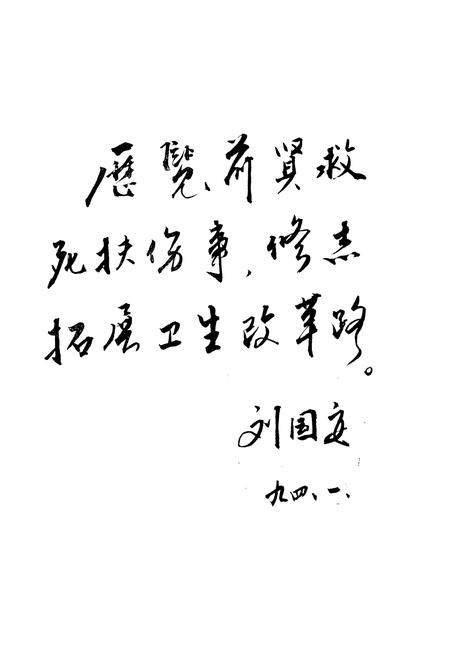 歷覽前贤救
死扶伤事，修志
拓展卫生改革路。
刘国安
九四、一、